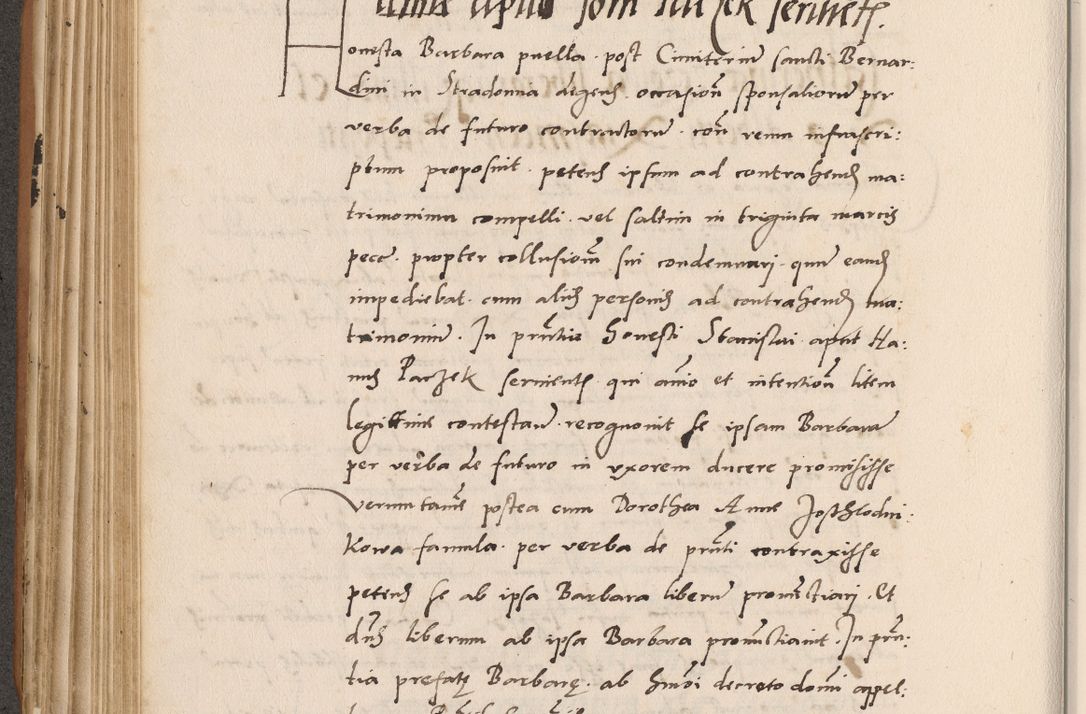 onesta Barbara puella post Cimiterium sancti Bernar:
dini in Stradomia degens occasion sponsaliorum per
verba de futuro contractorum con reum infrascri:
ptum proposuit petens ipsum ad contrahend ma:
trimonium compelli vel saltim in triginta marcis
pecc propter collusionem sui condemnari que eand
impediebat cum aliis personis ad contrahend ma:
trimonium. In pntia honesti Stanislai aput Ha:
nus Paczek servient qui animo et intention litem
legittime contestan recognovit se ipsam Barbaram
per verba de futuro in uxorem ducere promisisse
verumtamen postea cum Dorothea Anne
kowa famula per verba de pnti contraxisse
petens se ab ipsa Barbara liberum pronunctiari. Et
dns liberum ab ipsa Barbara pronunctiavit. In prn:
tia prefate Barbare ab hmoi decreto domi appel: